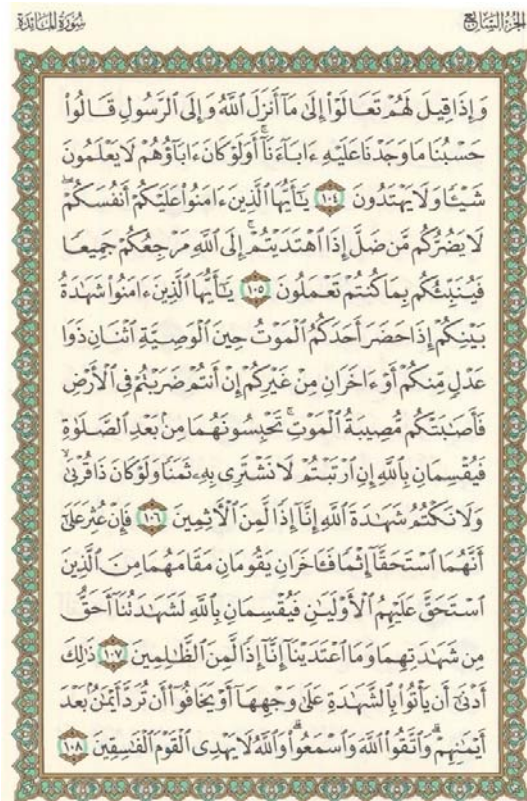 الجزء السابع
سورة المائدة
وَإِذَا قِيلَ لَهُمْ تَعَالَوْا۟ إِلَىٰ مَآ أَنزَلَ ٱللَّهُ وَإِلَى ٱلرَّسُولِ قَالُوا۟
حَسْبُنَا مَا وَجَدْنَا عَلَيْهِ ءَابَآءَنَآ ۚ أَوَلَوْ كَانَ ءَابَآؤُهُمْ لَا يَعْلَمُونَ
شَيْـًٔا وَلَا يَهْتَدُونَ ١٠٤ يَـٰٓأَيُّهَا ٱلَّذِينَ ءَامَنُوا۟ عَلَيْكُمْ أَنفُسَكُمْ ۖ
لَا يَضُرُّكُم مَّن ضَلَّ إِذَا ٱهْتَدَيْتُمْ ۚ إِلَى ٱللَّهِ مَرْجِعُكُمْ جَمِيعًا
فَيُنَبِّئُكُم بِمَا كُنتُمْ تَعْمَلُونَ ١٠٥ يَـٰٓأَيُّهَا ٱلَّذِينَ ءَامَنُوا۟ شَهَـٰدَةُ
بَيْنِكُمْ إِذَا حَضَرَ أَحَدَكُمُ ٱلْمَوْتُ حِينَ ٱلْوَصِيَّةِ ٱثْنَانِ ذَوَا
عَدْلٍ مِّنكُمْ أَوْ ءَاخَرَانِ مِنْ غَيْرِكُمْ إِنْ أَنتُمْ ضَرَبْتُمْ فِى ٱلْأَرْضِ
فَأَصَـٰبَتْكُم مُّصِيبَةُ ٱلْمَوْتِ ۚ تَحْبِسُونَهُمَا مِنۢ بَعْدِ ٱلصَّلَوٰةِ
فَيُقْسِمَانِ بِٱللَّهِ إِنِ ٱرْتَبْتُمْ لَا نَشْتَرِى بِهِۦ ثَمَنًا وَلَوْ كَانَ ذَا قُرْبَىٰ ۙ
وَلَا نَكْتُمُ شَهَـٰدَةَ ٱللَّهِ إِنَّآ إِذًا لَّمِنَ ٱلْـَٔاثِمِينَ ١٠٦ فَإِنْ عُثِرَ عَلَىٰٓ
أَنَّهُمَا ٱسْتَحَقَّآ إِثْمًا فَـَٔاخَرَانِ يَقُومَانِ مَقَامَهُمَا مِنَ ٱلَّذِينَ
ٱسْتَحَقَّ عَلَيْهِمُ ٱلْأَوْلَيَـٰنِ فَيُقْسِمَانِ بِٱللَّهِ لَشَهَـٰدَتُنَآ أَحَقُّ
مِن شَهَـٰدَتِهِمَا وَمَا ٱعْتَدَيْنَآ إِنَّآ إِذًا لَّمِنَ ٱلظَّـٰلِمِينَ ١٠٧ ذَٰلِكَ
أَدْنَىٰٓ أَن يَأْتُوا۟ بِٱلشَّهَـٰدَةِ عَلَىٰ وَجْهِهَآ أَوْ يَخَافُوٓا۟ أَن تُرَدَّ أَيْمَـٰنٌۢ بَعْدَ
أَيْمَـٰنِهِمْ ۗ وَٱتَّقُوا۟ ٱللَّهَ وَٱسْمَعُوا۟ ۗ وَٱللَّهُ لَا يَهْدِى ٱلْقَوْمَ ٱلْفَـٰسِقِينَ ١٠٨